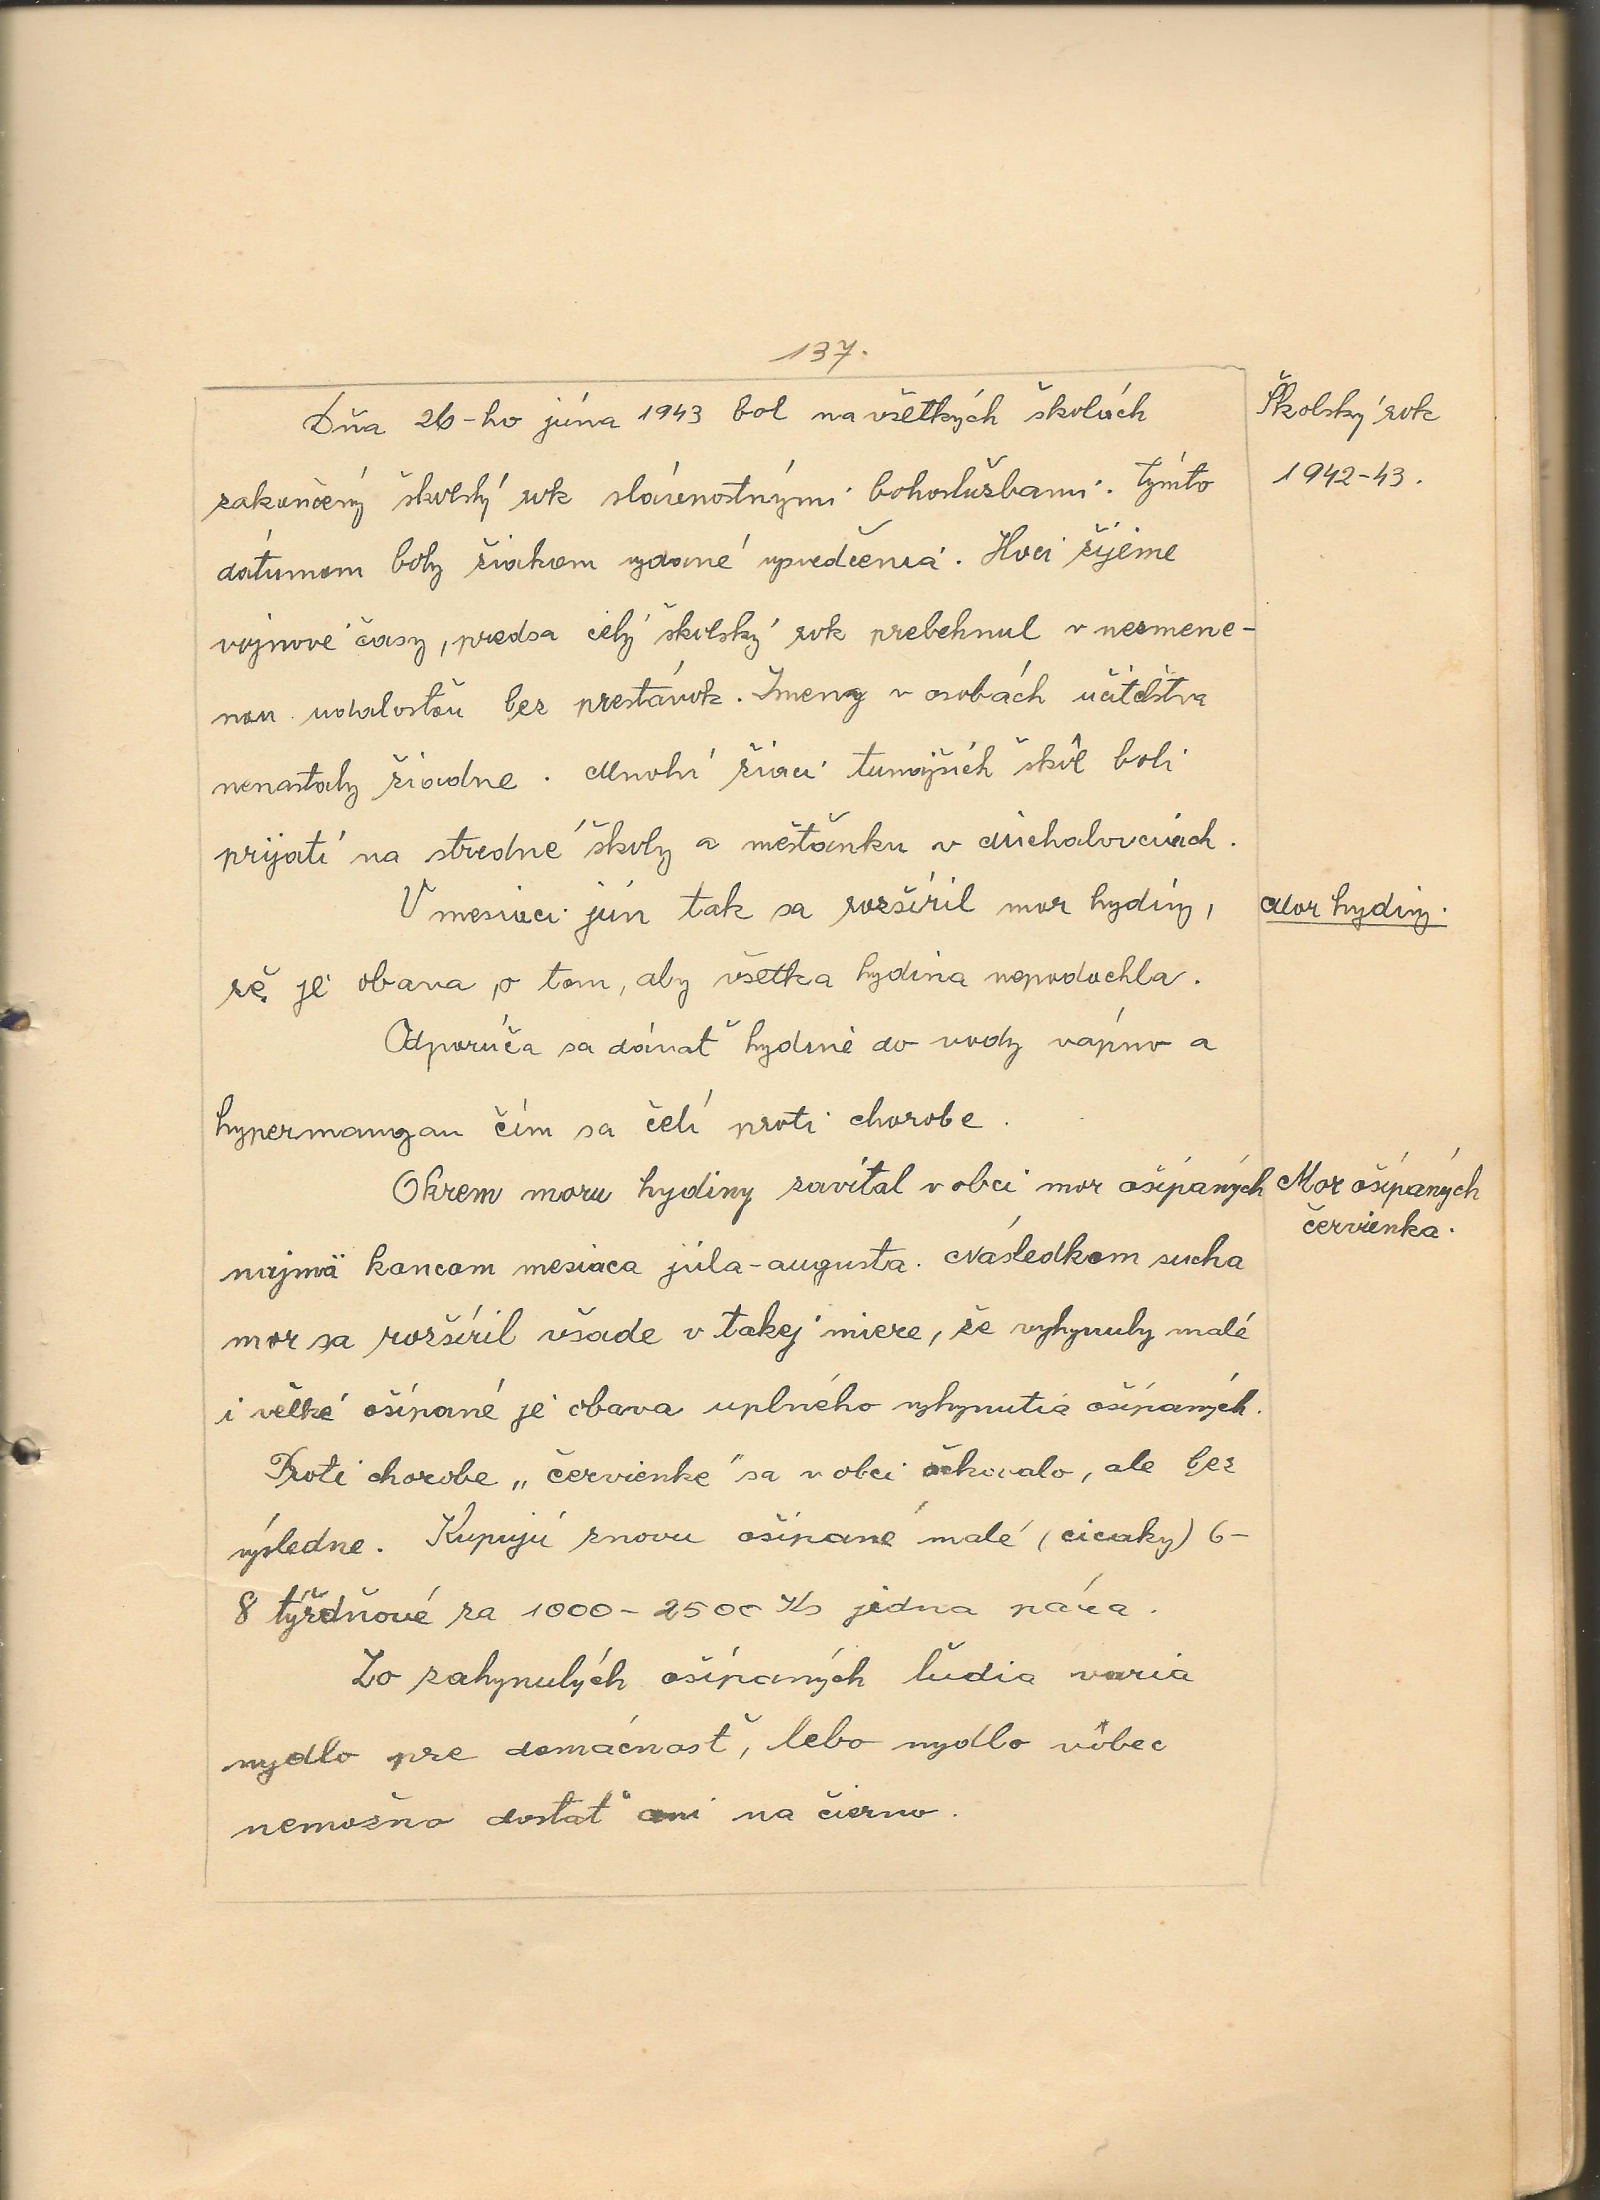 137.
Dňa 26-ho júna 1943 bol na všetkých školách
Školský rok
zakončený školský rok slávnostnými bohoslužbami. Týmto
1942-43.
dátumom boly žiakom vydané vysvedčenia. Hoci žijeme
vojnové časy, predsa celý školský rok prebehnul v nezmene-
nou udalosťou bez prestávok. Zmeny v osobách učiteľstva
nenastaly žiadne. Mnohí žiaci tunajších škôl boli
prijatí na stredné školy a mešťánku v Michalovciach.
V mesiaci jún tak sa rozšíril mor hydiny,
Mor hydiny.
že je obava o tom, aby všetka hydina nepodochla.
Odporúča sa dávať hydine do vody vápno a
hypermangan čím sa čelí proti chorobe.
Okrem moru hydiny zavítal v obci mor ošípaných
Mor ošípaných
červienka.
najmä koncom mesiaca júla-augusta. Následkom sucha
mor sa rozšíril všade v takej miere, že vyhynuly malé
i veľké ošípané je obava uplného vyhynutia ošípaných.
Proti chorobe „červienke" sa v obci očkovalo, ale bez
výsledne. Kupujú znovu ošípané malé (cicaky) 6-
8 týždňové za 1000-2500 Ks jedna pára.
Zo zahynulých ošípaných ľudia varia
mydlo pre domácnosť, lebo mydlo vôbec
nemožno dostať ani na čierno.